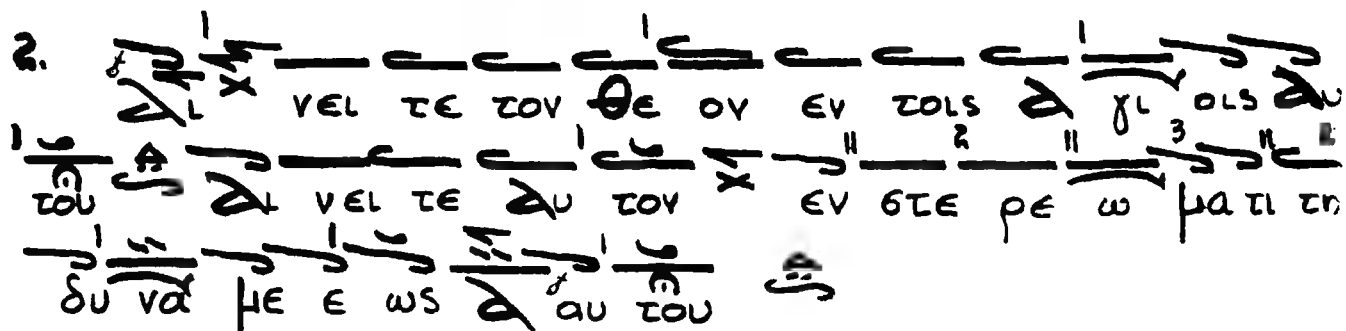 2. αι νει τε τον θε ον εν τοις α γι οις αυ
του αι νει τε αυ τον εν στε ρε ω μα τι τη
δυ να με ε ως α αυ του